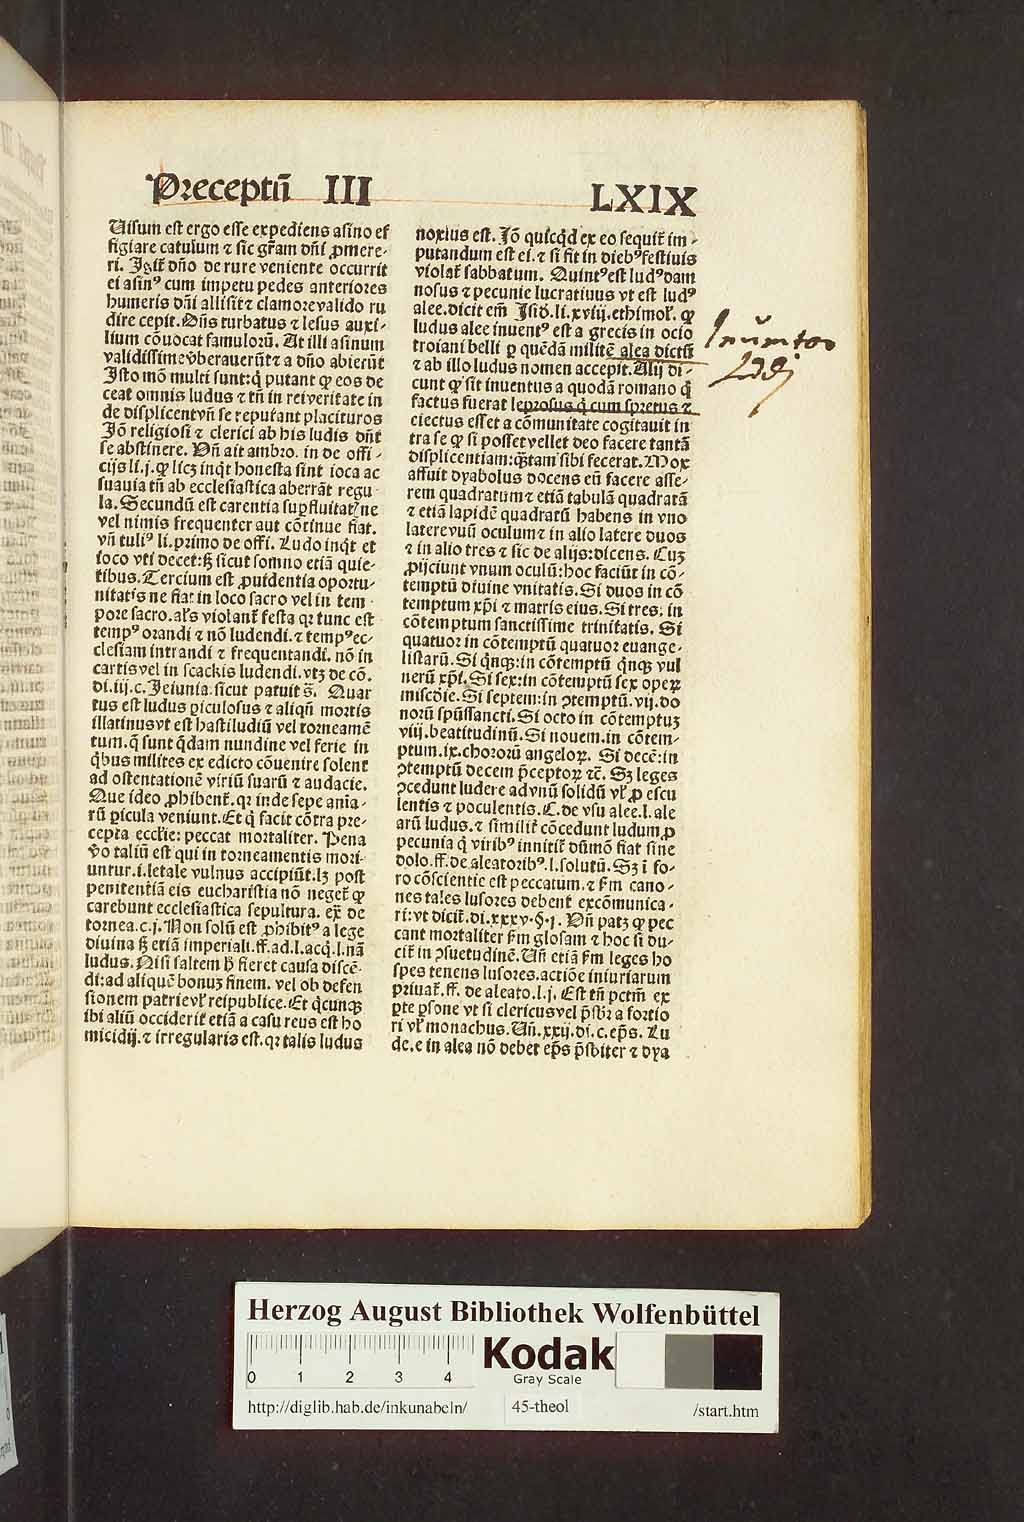 Preceptū III
LXIX
Uisum est ergo esse expediens asino ef
figiare catulum ⁊ sic gr̄am dn̄i ꝓmere-
ri. Igit᷑ dn̄o de rure veniente occurrit
ei asinꝰ cum impetu pedes anteriores
humeris dn̄i allisit ⁊ clamore valido ru
dire cepit. Dn̄s turbatus ⁊ lesus auxi-
lium cōuocat famulorū. At illi asinum
validissime v̓berauerūt ⁊ a dn̄o abierūt
Isto mō multi sunt: q̄ putant ꝙ eos de
ceat omnis ludus ⁊ tn̄ in rei veritate in
de displicent vn̄ se reputant placituros
Iō religiosi ⁊ clerici ab his ludis dn̄t
se abstinere. Vn̄ ait ambro. in de offi-
cijs li. j. ꝙ licꝫ inqt honesta sint ioca ac
suauia tn̄ ab ecclesiastica aberrāt regu
la. Secundū est carentia suꝑfluitat᷑ ne
vel nimis frequenter aut cōtinue fiat.
vn̄ tuliꝰ li. primo de offi. Ludo inqt et
ioco vti decet: sꝫ sicut somno etiā quie-
tibus. Tercium est ꝓuidentia oportu-
nitatis ne fiat in loco sacro vel in tem-
pore sacro. al̓s violant᷑ festa qꝛ tunc est
tempꝰ orandi ⁊ nō ludendi. ⁊ tempꝰ ec-
clesiam intrandi ⁊ frequentandi. nō in
cartis vel in scackis ludendi. vtꝫ de cō.
di. iij. c. Jeiunia. sicut patuit s̄. Quar
tus est ludus ꝑiculosus ⁊ aliqn̄ mortis
illatinus vt est hastiludiū vel torneamē
tum. q̄ sunt q̄dam nundine vel ferie in
qͥbus milites ex edicto cōuenire solent
ad ostentationē viriū suarū ⁊ audacie.
Que ideo ꝓhibent᷑. qꝛ inde sepe ania-
rū ꝑicula veniunt. Et q̄ facit cōtra pre-
cepta eccl̓ie: peccat mortaliter. Pena
v̓o taliū est qui in torneamentis mori-
untur. i. letale vulnus accipiūt. lꝫ post
penitentiā eis eucharistia nō neget᷑ ꝙ
carebunt ecclesiastica sepultura. ex̄ de
tornea. c. j. Non solū est ꝓhibitꝰ a lege
diuina sꝫ etiā imperiali. ff. ad. l. acq̄. l. nā
ludus. Nisi saltem h̓ fieret causa discē-
di: ad aliquē bonuꝫ finem. vel ob defen
sionem patrie vl̓ reipublice. Et q̄cunqꝫ
ibi aliū occiderit etiā a casu reus est ho
micidij. ⁊ irregularis est. qꝛ talis ludus
noxius est. Iō quicq̄d ex eo sequit᷑ im-
putandum est ei. ⁊ si fit in diebꝰ festiuis
violat᷑ sabbatum. Quintꝰ est ludꝰ dam
nosus ⁊ pecunie lucratiuus vt est ludꝰ
alee. dicit em̄ Isid. li. xviij. ethimol᷑. ꝙ
ludus alee inuentꝰ est a grecis in ocio
troiani belli ꝑ quēdā militē alea dictū
⁊ ab illo ludus nomen accepit. Alij di-
cunt ꝙ sit inuentus a quodā romano q̄
factus fuerat leprosus q̄ cum spretus ⁊
eiectus esset a cōmunitate cogitauit in
tra se ꝙ si posset vellet deo facere tantā
displicentiam: q̄ntam sibi fecerat. Mox
affuit dyabolus docens eū facere asse-
rem quadratum ⁊ etiā tabulā quadratā
⁊ etiā lapidē quadratū habens in vno
latere vnū oculum ⁊ in alio latere duos
⁊ in alio tres ⁊ sic de alijs: dicens. Cuꝫ
ꝓijciunt vnum oculū: hoc faciūt in cō-
temptū diuine vnitatis. Si duos in cō
temptum xp̄i ⁊ matris eius. Si tres: in
cōtemptum sanctissime trinitatis. Si
quatuor in cōtemptū quatuor euange-
listarū. Si qͥnqꝫ: in cōtemptū qͥnqꝫ vul
nerū xp̄i. Si sex: in cōtemptū sex operꝝ
miscd̓ie. Si septem: in ↄtemptū. vij. do
norū spūssancti. Si octo in cōtemptuꝫ
viij. beatitudinū. Si nouem. in cōtem-
ptum. ix. chororū angeloꝝ. Si decē: in
ↄtemptū decem p̄ceptoꝝ ⁊c̄. Sꝫ leges
ↄcedunt ludere ad vnū solidū vl̓ ꝓ escu
lentis ⁊ poculentis. C. de vsu alee. l. ale
arū ludus. ⁊ similit᷑ cōcedunt ludum ꝓ
pecunia q̄ viribꝰ innitit᷑ dūmō fiat sine
dolo. ff. de aleatoribꝰ. l. solutū. Sꝫ ī fo-
ro cōscientie est peccatum. ⁊ fm̄ cano-
nes tales lusores debent excōmunica-
ri: vt dicit᷑. di. xxxv. §. j. Vn̄ patꝫ ꝙ pec
cant mortaliter fm̄ glosam ⁊ hoc si du-
cit᷑ in ↄsuetudinē. Un̄ etiā fm̄ leges ho
spes tenens lusores. actiōe iniuriarum
priuat᷑. ff. de aleato. l. j. Est tn̄ pctm̄ ex
ꝑte ꝑsone vt si clericus vel p̄sbr̄ a fortio
ri vl̓ monachus. Un̄. xxij. di. c. ep̄s. Lu
de. e in alea nō debet ep̄s p̄sbiter ⁊ dya
Inuentor
Ludi
Herzog August Bibliothek Wolfenbüttel
0 1 2 3 4
Kodak
Gray Scale
http://diglib.hab.de/inkunabeln/
45-theol
/start.htm